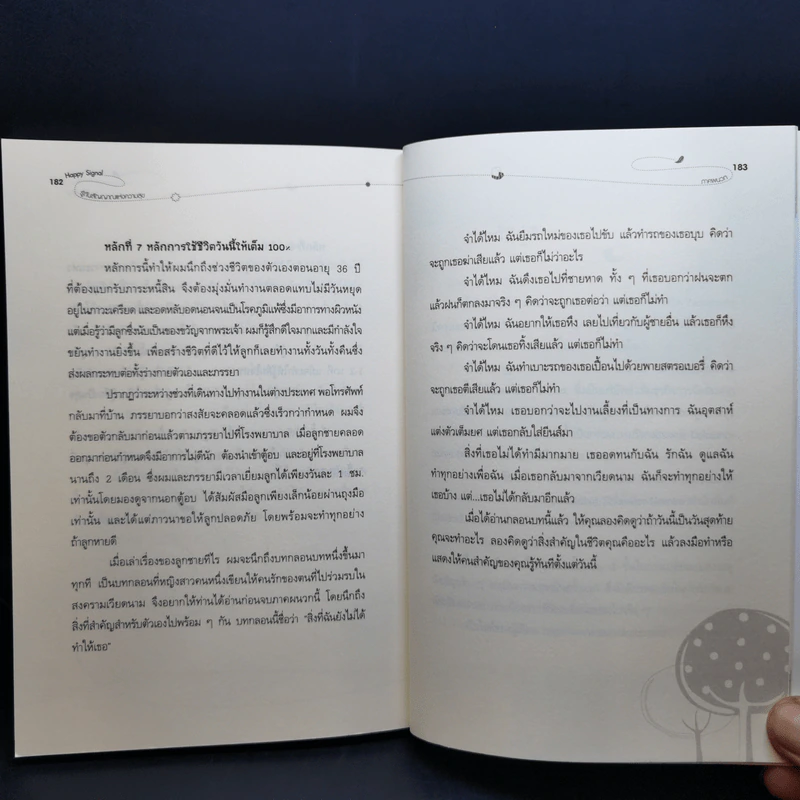 182
Happy Signal
รู้ทันสัญญาณแห่งความสุข
หลักที่ 7 หลักการใช้ชีวิตวันนี้ให้เต็ม 100%
หลักการนี้ทำให้ผมนึกถึงช่วงชีวิตของตัวเองตอนอายุ 36 ปี
ที่ต้องแบกรับภาระหนี้สิน จึงต้องมุ่งมั่นทำงานตลอดแทบไม่มีวันหยุด
อยู่ในภาวะเครียด และอดหลับอดนอนจนเป็นโรคภูมิแพ้ซึ่งมีอาการทางผิวหนัง
แต่เมื่อรู้ว่ามีลูกซึ่งนับเป็นของขวัญจากพระเจ้า ผมก็รู้สึกดีใจมากและมีกำลังใจ
ขยันทำงานยิ่งขึ้น เพื่อสร้างชีวิตที่ดีไว้ให้ลูกก็เลยทำงานทั้งวันทั้งคืนซึ่ง
ส่งผลกระทบต่อทั้งร่างกายตัวเองและภรรยา
ปรากฏว่าระหว่างช่วงที่เดินทางไปทำงานในต่างประเทศ พอโทรศัพท์
กลับมาที่บ้าน ภรรยาบอกว่าสงสัยจะคลอดแล้วซึ่งเร็วกว่ากำหนด ผมจึง
ต้องขอตัวกลับมาก่อนแล้วตามภรรยาไปที่โรงพยาบาล เมื่อลูกชายคลอด
ออกมาก่อนกำหนดจึงมีอาการไม่ดีนัก ต้องนำเข้าตู้อบ และอยู่ที่โรงพยาบาล
นานถึง 2 เดือน ซึ่งผมและภรรยามีเวลาเยี่ยมลูกได้เพียงวันละ 1 ชม.
เท่านั้นโดยมองดูจากนอกตู้อบ ได้สัมผัสมือลูกเพียงเล็กน้อยผ่านถุงมือ
เท่านั้น และได้แต่ภาวนาขอให้ลูกปลอดภัย โดยพร้อมจะทำทุกอย่าง
ถ้าลูกหายดี
เมื่อเล่าเรื่องของลูกชายทีไร ผมจะนึกถึงบทกลอนบทหนึ่งขึ้นมา
ทุกที เป็นบทกลอนที่หญิงสาวคนหนึ่งเขียนให้คนรักของตนที่ไปร่วมรบใน
สงครามเวียดนาม จึงอยากให้ท่านได้อ่านก่อนจบภาคผนวกนี้ โดยนึกถึง
สิ่งที่สำคัญสำหรับตัวเองไปพร้อม ๆ กัน บทกลอนนี้ชื่อว่า "สิ่งที่ฉันยังไม่ได้
ทำให้เธอ"
183
ภาคผนวก
จำได้ไหม ฉันยืมรถใหม่ของเธอไปขับ แล้วทำรถของเธอบุบ คิดว่า
จะถูกเธอฆ่าเสียแล้ว แต่เธอก็ไม่ว่าอะไร
จำได้ไหม ฉันดึงเธอไปที่ชายหาด ทั้ง ๆ ที่เธอบอกว่าฝนจะตก
แล้วฝนก็ตกลงมาจริง ๆ คิดว่าจะถูกเธอต่อว่า แต่เธอก็ไม่ทำ
จำได้ไหม ฉันอยากให้เธอหึง เลยไปเที่ยวกับผู้ชายอื่น แล้วเธอก็หึง
จริง ๆ คิดว่าจะโดนเธอทิ้งเสียแล้ว แต่เธอก็ไม่ทำ
จำได้ไหม ฉันทำเบาะรถของเธอเปื้อนไปด้วยพายสตรอเบอรี่ คิดว่า
จะถูกเธอตีเสียแล้ว แต่เธอก็ไม่ทำ
จำได้ไหม เธอบอกว่าจะไปงานเลี้ยงที่เป็นทางการ ฉันอุตสาห์
แต่งตัวเต็มยศ แต่เธอกลับใส่ยีนส์มา
สิ่งที่เธอไม่ได้ทำมีมากมาย เธออดทนกับฉัน รักฉัน ดูแลฉัน
ทำทุกอย่างเพื่อฉัน เมื่อเธอกลับมาจากเวียดนาม ฉันก็จะทำทุกอย่างให้
เธอบ้าง แต่...เธอไม่ได้กลับมาอีกแล้ว
เมื่อได้อ่านกลอนบทนี้แล้ว ให้คุณลองคิดดูว่าถ้าวันนี้เป็นวันสุดท้าย
คุณจะทำอะไร ลองคิดดูว่าสิ่งสำคัญในชีวิตคุณคืออะไร แล้วลงมือทำหรือ
แสดงให้คนสำคัญของคุณรู้ทันทีตั้งแต่วันนี้